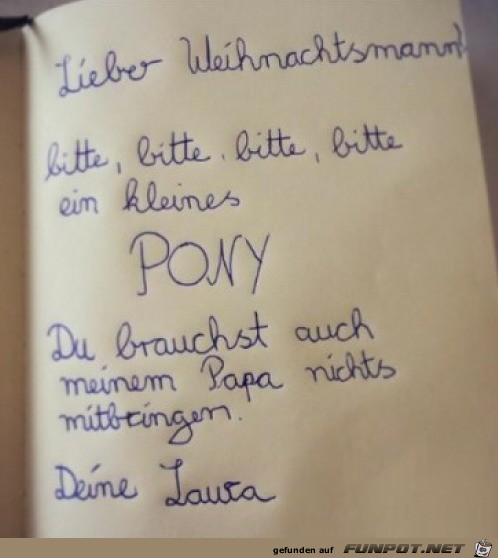 Lieber Weihnachtsmann!
bitte, bitte, bitte, bitte
ein kleines
PONY
Du brauchst auch
meinem Papa nichts
mitbringen.
Deine Laura
gefunden auf FUNPOT.NET